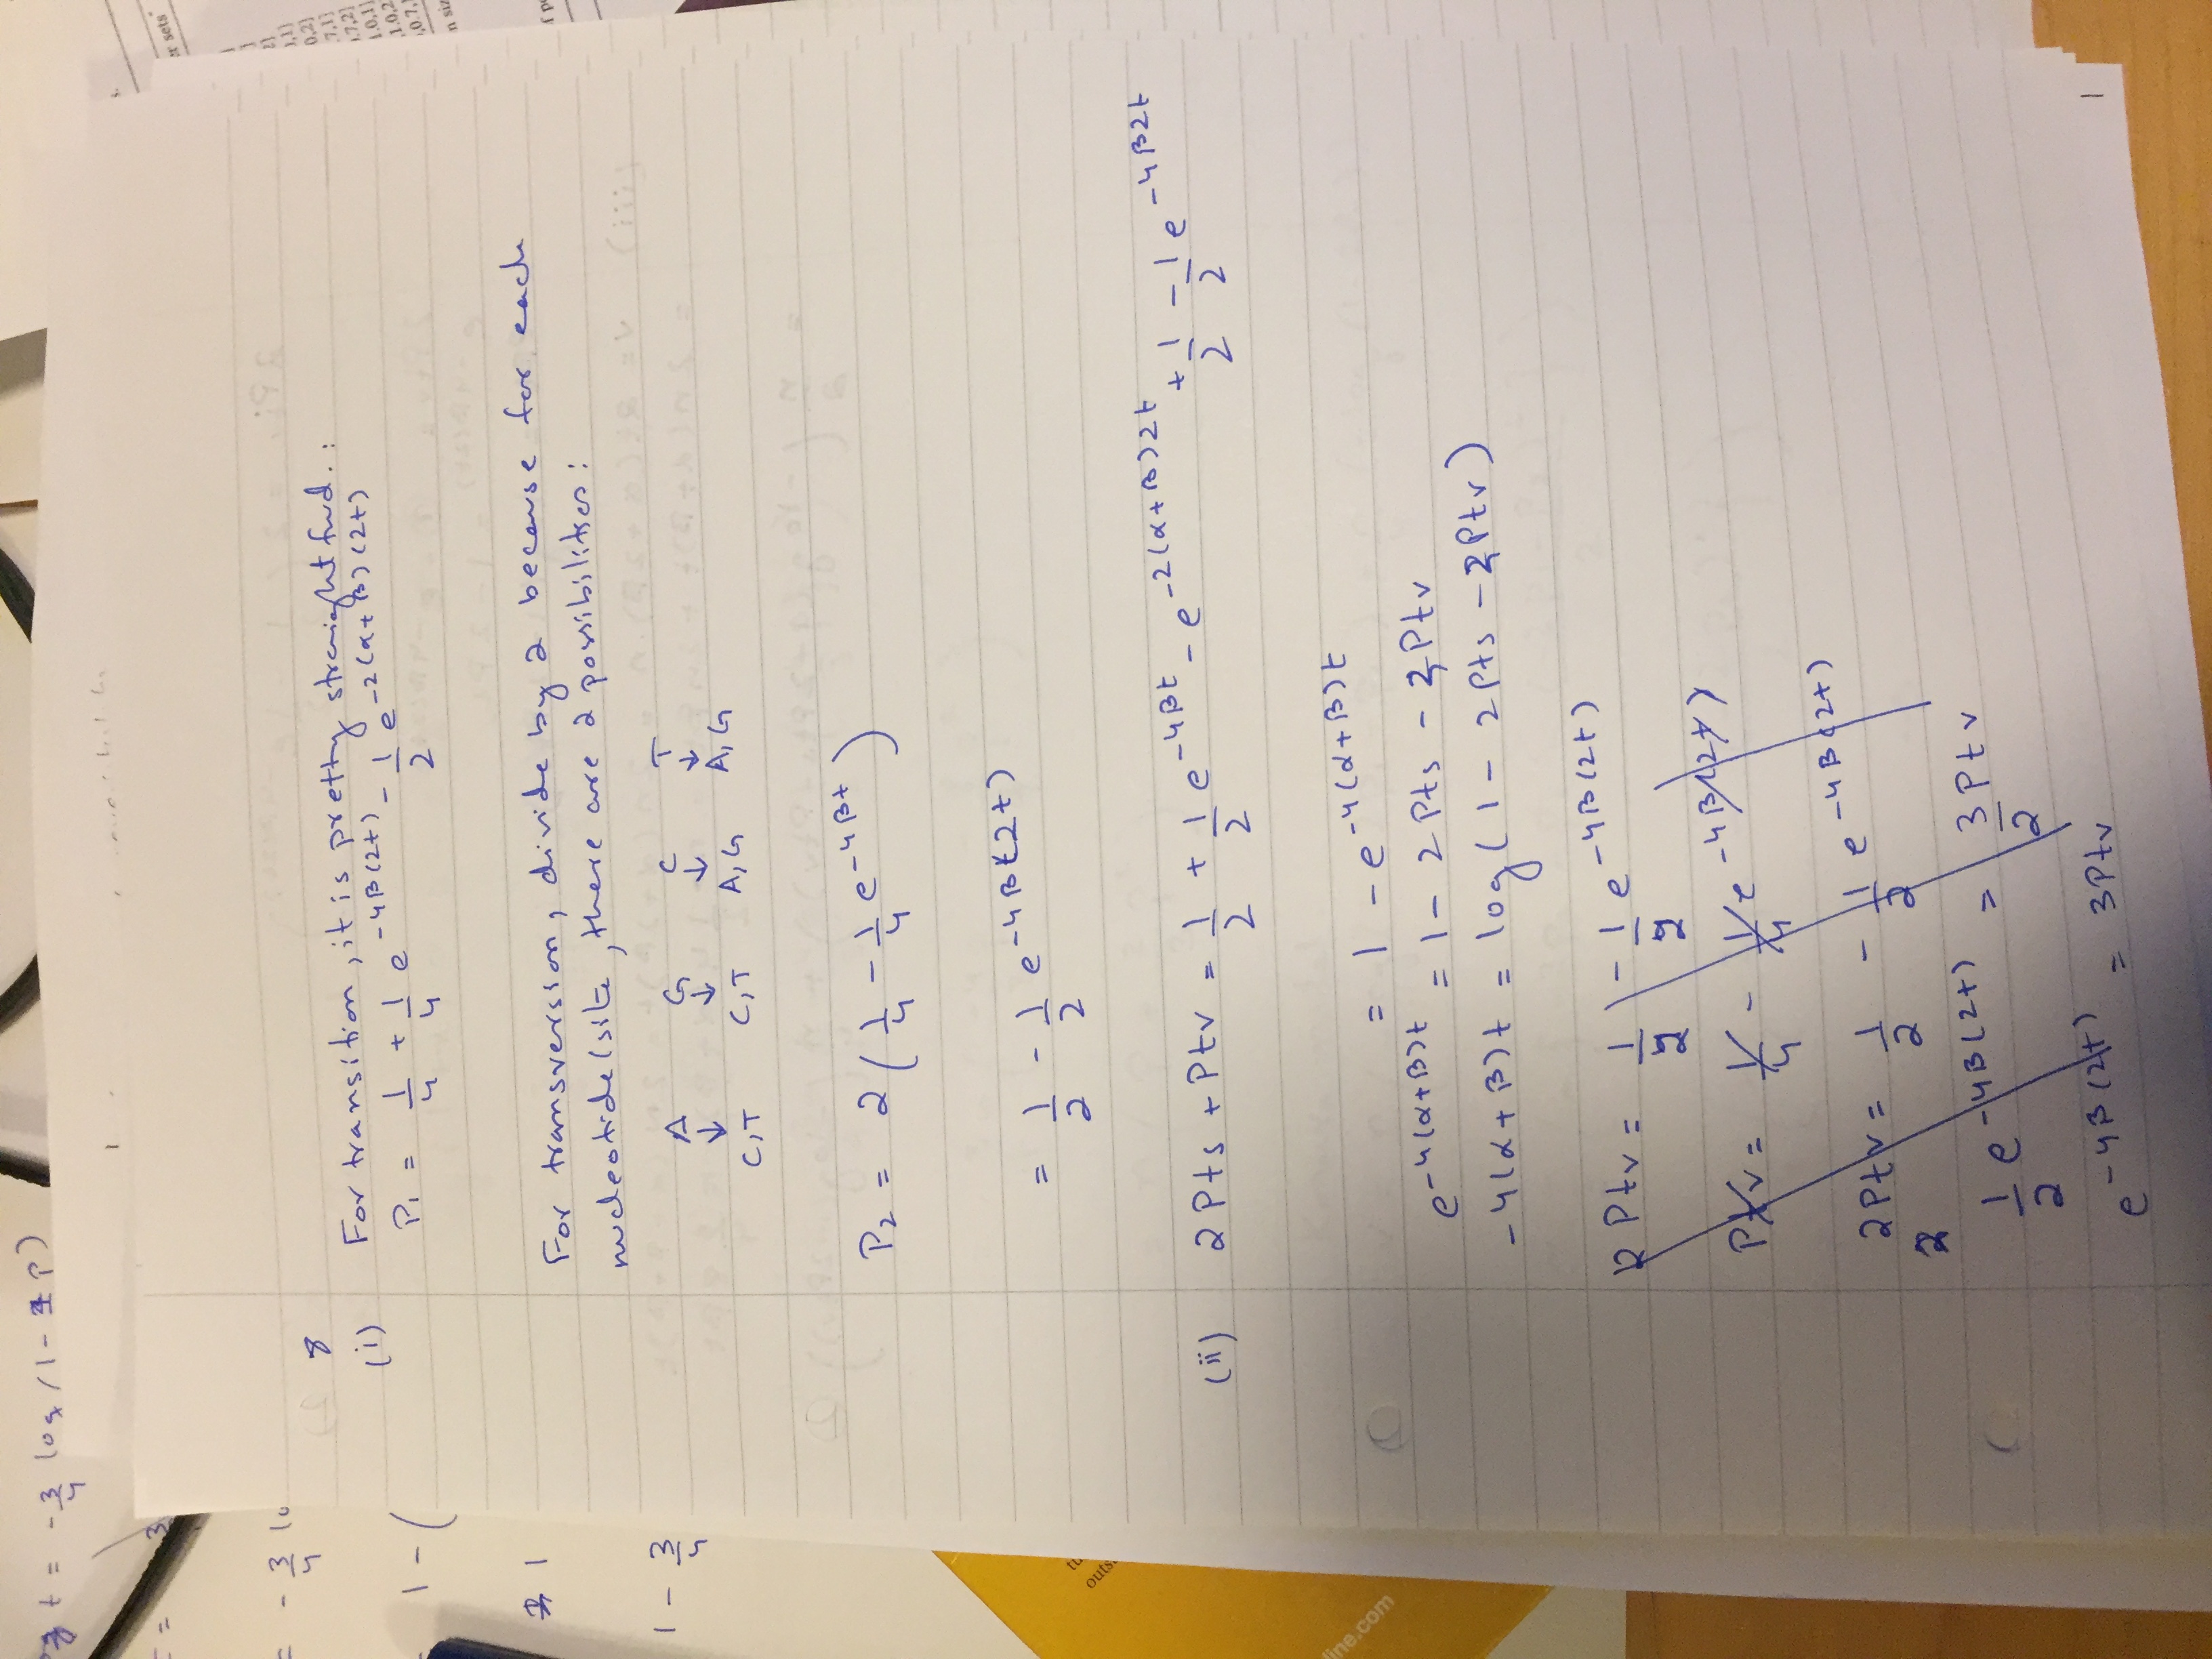 t = -3/4 log (1 - P)
= -3/4 lo
1 - (
1
1 - 3/4
er sets"
0,2]
7,1]
,7,2]
1.0,1]
,1.0,2
,0.7,
n siz
f p
8
(i) For transition, it is pretty straightfwd. :
P1 = 1/4 + 1/4 e^-4β(2t) - 1/2 e^-2(α+β)(2t)
For transversion, divide by 2 because for each
nucleotide/site, there are 2 possibilities:
A G C T
↓ ↓ ↓ ↓
C,T C,T A,G A,G
P2 = 2(1/4 - 1/4 e^-4βt)
= 1/2 - 1/2 e^-4β(2t)
(ii) 2Pts + Ptv = 1/2 + 1/2 e^-4βt - e^-2(α+β)2t + 1/2 - 1/2 e^-4β2t
= 1 - e^-4(α+β)t
e^-4(α+β)t = 1 - 2Pts - Ptv
-4(α+β)t = log(1 - 2Pts - Ptv)
Ptv = 1/2 - 1/2 e^-4β(2t)
Ptv = 1/4 - 1/4 e^-4β(2t)
2Ptv = 1/2 - 1/2 e^-4β(2t)
2
1/2 e^-4β(2t) = 3/2 Ptv
e^-4β(2t) = 3Ptv
1
outs
line.com